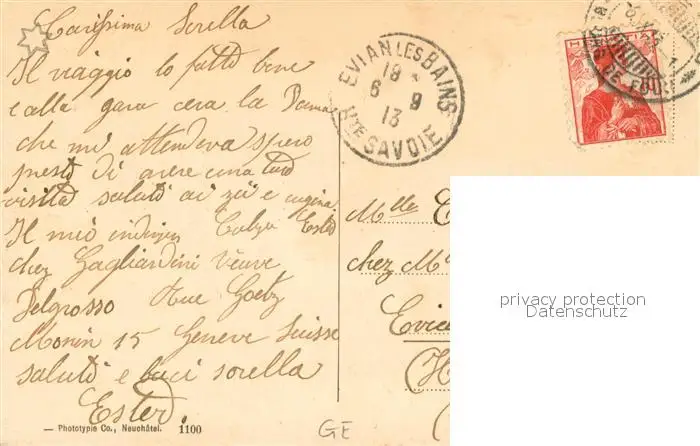 Carissima Sorella
Il viaggio lo fatto bene
e alla gara cera la Dama
che mi attendeva spero
presto di avere una tua
visita saluti ai zii e cugina
Il mio Calza Ester
chez Gagliardini Veuve
Delgrosso Rue Goetz
Monin 15 Geneve Suisse
saluti e baci sorella
Ester
— Phototypie Co., Neuchâtel. 1100
GE
EVIAN LES BAINS
18
6 9
13
Hte SAVOIE
HELVETIA
Mlle E
chez M
Evia
(H
(
privacy protection
Datenschutz